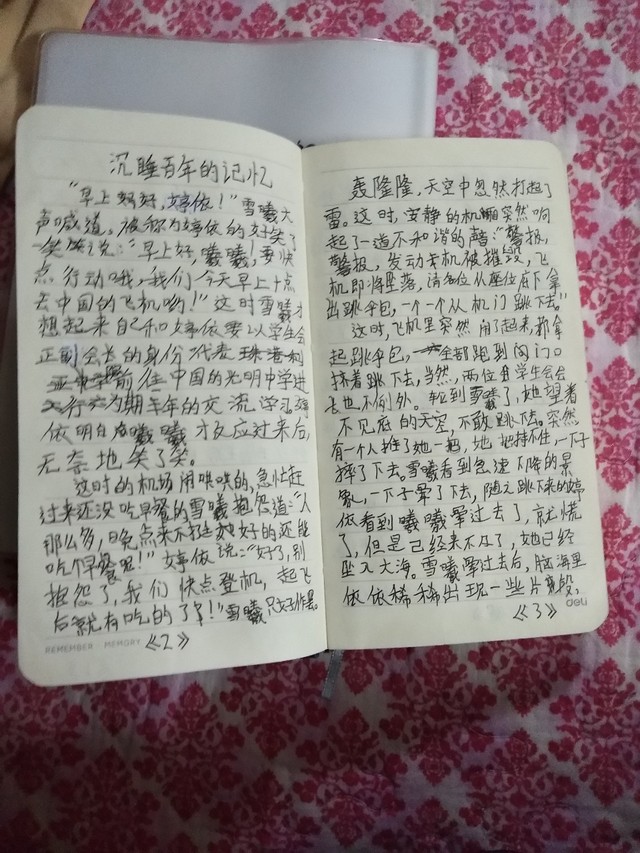 沉睡百年的记忆
“早上好好,婷依!”雪曦大
声喊道。被称为婷依的好笑了
一笑说:“早上好,曦曦!要快
点行动哦,我们今天早上十点
去中国的飞机哟!”这时雪曦才
想起来自己和婷依要以学生会
正副会长的身份代表
前往中国的光明中学进
行为期半年的交流学习。婷
依明白曦曦才反应过来后,
无奈地笑了笑。
这时的机场闹哄哄的,急忙赶
过来还没吃早餐的雪曦抱怨道:“人
那么多,晚点来不行 好的还能
吃个早餐呢!”婷依说:“好了,别
抱怨了,我们快点登机,起飞
后就有吃的了!”雪曦只好作罢。
REMEMBER · MEMORY 《2》
轰隆隆,天空中忽然打起了
雷。这时,安静的机舱突然响
起了一道不和谐的声音:“警报,
警报,发动专机被摧毁,飞
机即将坠落,请各位从座位底下拿
出跳伞包,一个一个从机门跳下去。”
这时,飞机里突然闹了起来,都拿
起跳伞包,全都跑到闸门口
挤着跳下去,当然,两位学生会会
长也不例外。轮到雪曦了,她望着
不见底的天空,不敢跳下去。突然
有个人推了她一把,她把持不住,一下子
摔了下去。雪曦看到急速下降的景
象,一下子晕了下去,随之跳下来的婷
依看到曦曦晕过去了,就慌
了,但是已经来不及了,她已经
坠入大海。雪曦晕过去后,脑海里
依依稀稀出现一些片段,
《3》 deli